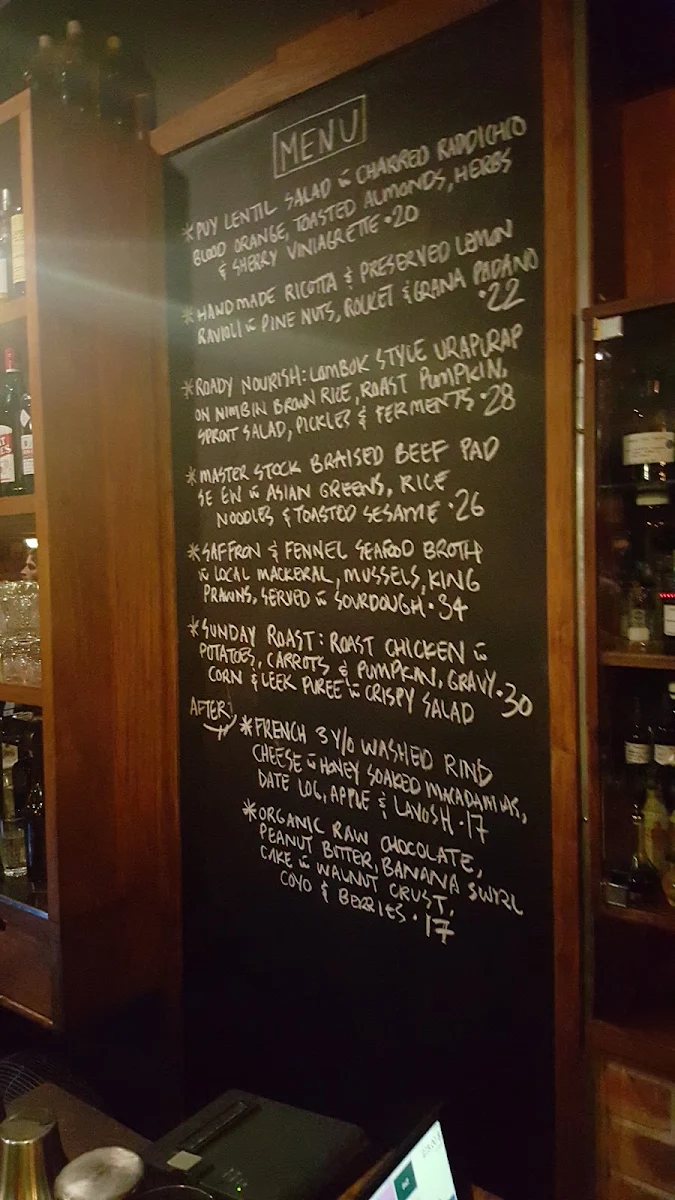 MENU
*PUY LENTIL SALAD w CHARRED RADDICHIO
BLOOD ORANGE, TOASTED ALMONDS, HERBS
& SHERRY VINIAGRETTE • 20
*HANDMADE RICOTTA & PRESERVED LEMON
RAVIOLI w PINE NUTS, ROCKET & GRANA PADANO
• 22
*ROADY NOURISH: LOMBOK STYLE URAPURAP
ON NIMBIN BROWN RICE, ROAST PUMPKIN,
SPROUT SALAD, PICKLES & FERMENTS • 28
*MASTER STOCK BRAISED BEEF PAD
SE EW w ASIAN GREENS, RICE
NOODLES & TOASTED SESAME • 26
*SAFFRON & FENNEL SEAFOOD BROTH
w LOCAL MACKERAL, MUSSELS, KING
PRAWNS, SERVED w SOURDOUGH • 34
*SUNDAY ROAST: ROAST CHICKEN w
POTATOES, CARROTS & PUMPKIN, GRAVY • 30
CORN & LEEK PUREE w CRISPY SALAD
AFTER:
*FRENCH 3 Y/O WASHED RIND
CHEESE w HONEY SOAKED MACADAMIAS,
DATE LOG, APPLE & LAVOSH • 17
*ORGANIC RAW CHOCOLATE,
PEANUT BUTTER, BANANA SWIRL
CAKE w WALNUT CRUST,
COYO & BERRIES • 17